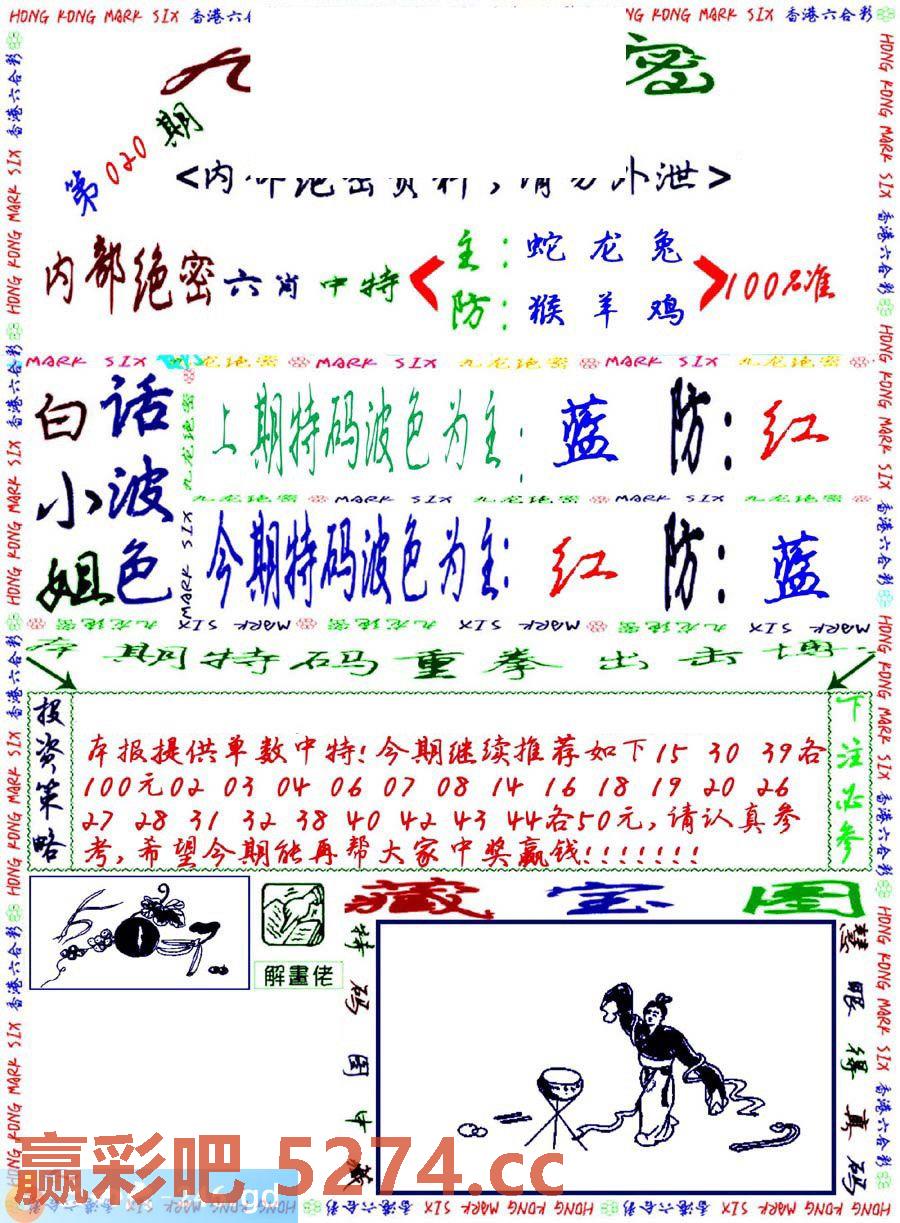 HONG KONG MARK SIX 香港六合彩
NG KONG MARK SIX 香港六合彩
密
第020期
内部绝密六肖中特
主：蛇龙兔
防：猴羊鸡
100%准
MARK SIX 九龙绝密 MARK SIX 九龙绝密 MARK SIX 九龙绝密
白话小姐波色
上期特码波色为主：蓝 防：红
九龙绝密 MARK SIX 九龙绝密 MARK SIX 九龙绝密
今期特码波色为主：红 防：蓝
期特码重拳出击
投资策略
本报提供单数中特!今期继续推荐如下15 30 39各
100元02 03 04 06 07 08 14 16 18 19 20 26
27 28 31 32 38 40 42 43 44各50元,请认真参
考,希望今期能再帮大家中奖赢钱!!!!!!!
下注必参
解畫佬
藏宝图
特码图中
慧眼得真码
赢彩吧 5274.cc